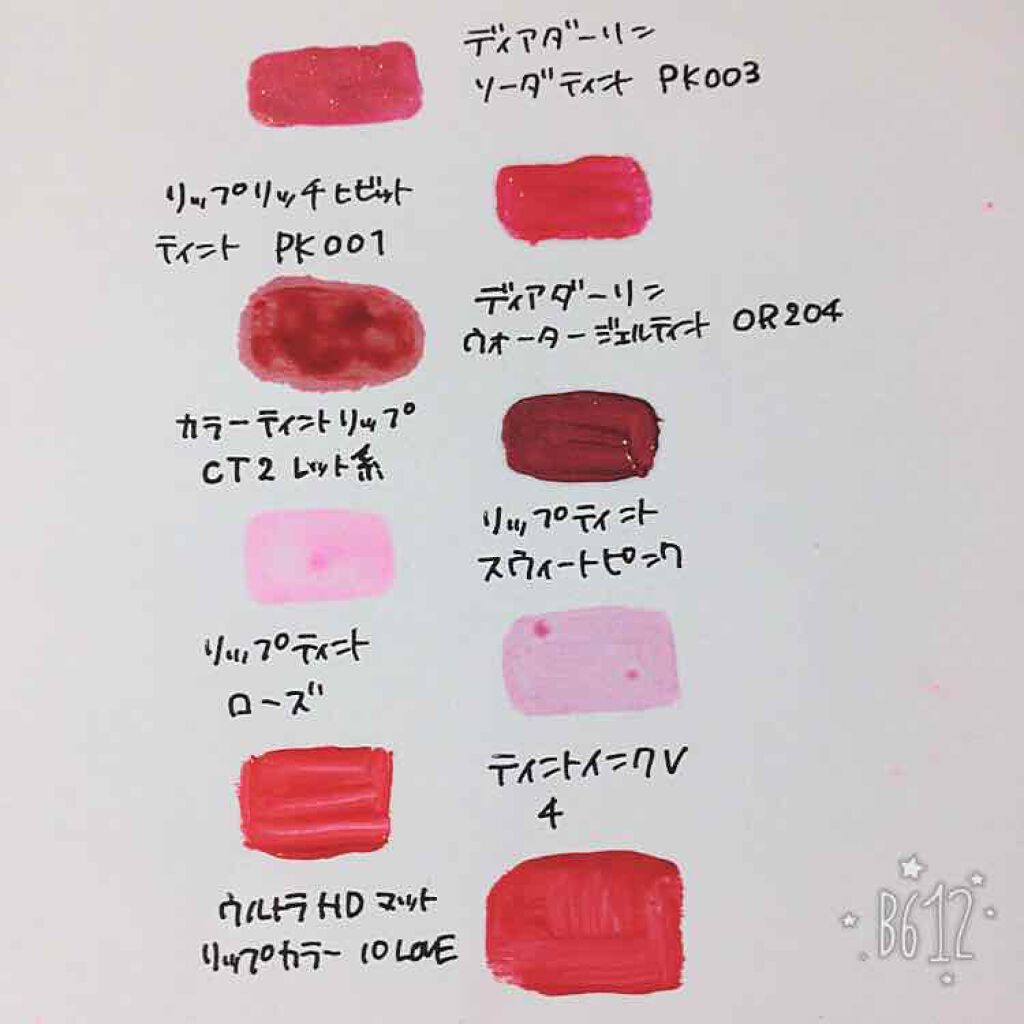 ディアダーリン
ソーダティント PK003
リップリッチビビット
ティント PK001
ディアダーリン
ウォータージェルティント OR204
カラーティントリップ
CT2 レット系
リップティント
スウィートピンク
リップティント
ローズ
ティントインクV
4
ウルトラHDマット
リップカラー 10 LOVE
B612